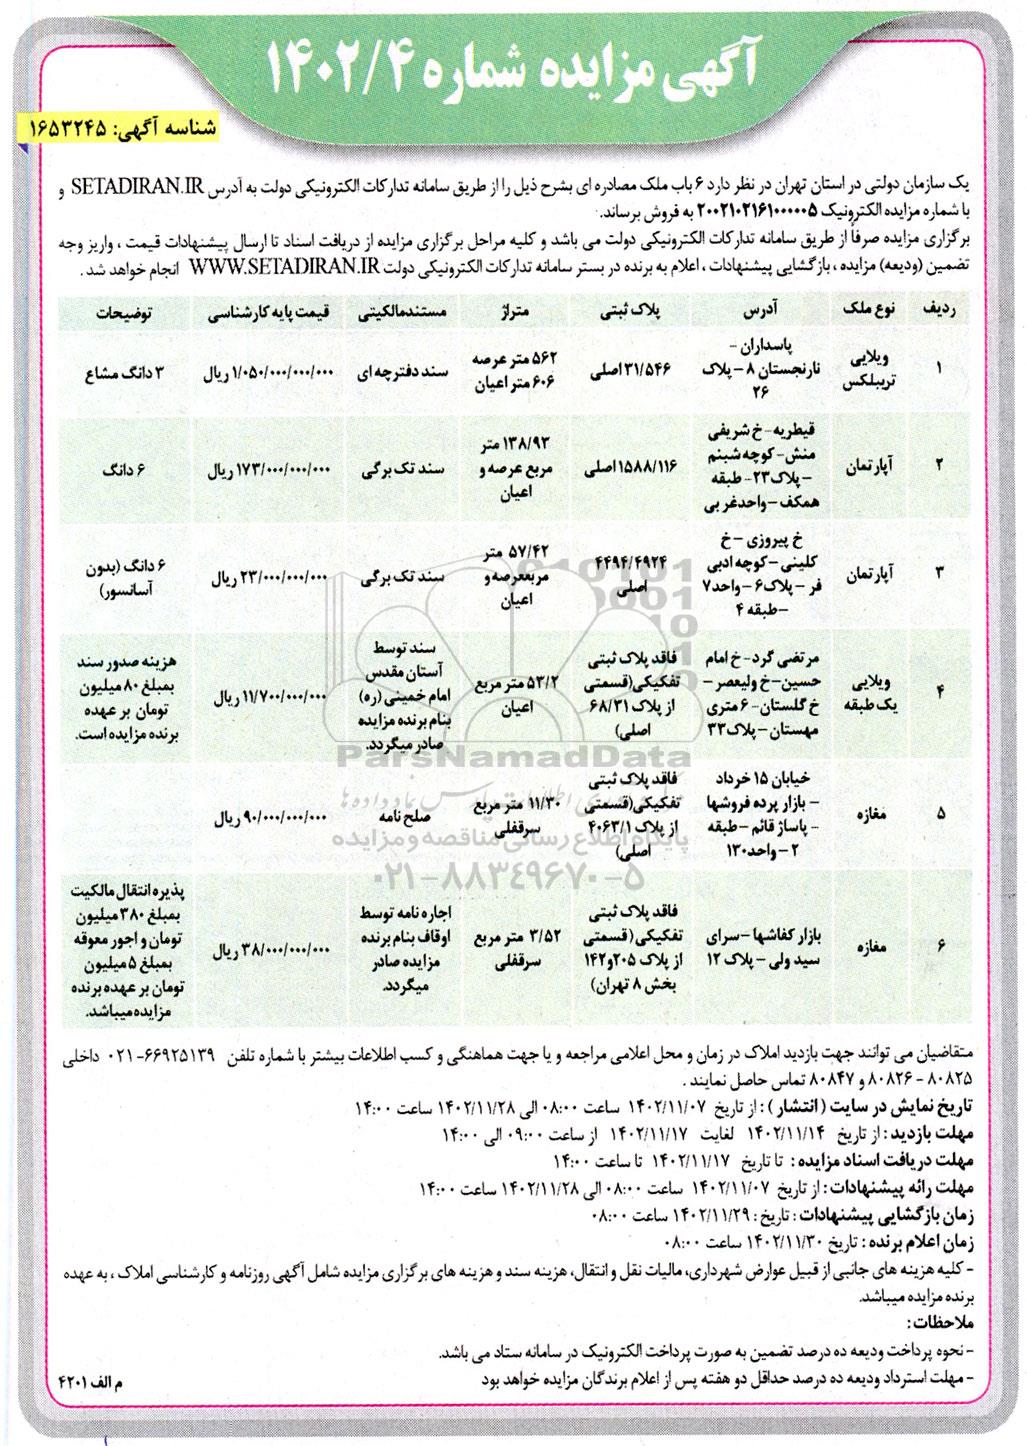 آگهی مزایده شماره ۱۴۰۲/۴
شناسه آگهی: ۱۶۵۳۲۴۵
یک سازمان دولتی در استان تهران در نظر دارد ۶ باب ملک مصادره ای بشرح ذیل را از طریق سامانه تدارکات الکترونیکی دولت به آدرس SETADIRAN.IR و
با شماره مزایده الکترونیک ۲۰۰۲۱۰۲۱۶۱۰۰۰۰۰۵ به فروش برساند.
برگزاری مزایده صرفاً از طریق سامانه تدارکات الکترونیکی دولت می باشد و کلیه مراحل برگزاری مزایده از دریافت اسناد تا ارسال پیشنهادات قیمت ، واریز وجه
تضمین (ودیعه) مزایده ، بازگشایی پیشنهادات ، اعلام به برنده در بستر سامانه تدارکات الکترونیکی دولت WWW.SETADIRAN.IR انجام خواهد شد .
ردیف نوع ملک آدرس پلاک ثبتی متراژ مستندمالکیتی قیمت پایه کارشناسی توضیحات
۱
ویلایی
تریبلکس
پاسداران –
نارنجستان ۸ – پلاک
۲۶
۳۱/۵۴۶ اصلی
۵۶۲ متر عرصه
۶۰۶ متر اعیان
سند دفترچه ای
۱/۰۵۰/۰۰۰/۰۰۰/۰۰۰ ریال
۳ دانگ مشاع
۲
آپارتمان
قیطریه- خ شریفی
منش- کوچه شبنم
–پلاک۲۳- طبقه
همکف –واحدغربی
۱۵۸۸/۱۱۶ اصلی
۱۳۸/۹۳ متر
مربع عرصه و
اعیان
سند تک برگی
۱۷۳/۰۰۰/۰۰۰/۰۰۰ ریال
۶ دانگ
۳
آپارتمان
خ پیروزی –خ
کلینی –کوچه ادبی
فر – پلاک۶ –واحد۷
–طبقه ۴
۴۴۹۴/۴۹۲۴
اصلی
۵۷/۴۲ متر
مربععرصه و
اعیان
سند تک برگی
۲۳/۰۰۰/۰۰۰/۰۰۰ ریال
۶ دانگ (بدون
آسانسور)
۴
ویلایی
یک طبقه
مرتضی گرد- خ امام
حسین-خ ولیعصر –
خ گلستان- ۶ متری
مهستان –پلاک۳۳
فاقد پلاک ثبتی
تفکیکی(قسمتی
از پلاک ۶۸/۳۱
اصلی)
۵۳/۲ متر مربع
اعیان
سند توسط
آستان مقدس
امام خمینی (ره)
بنام برنده مزایده
صادر میگردد.
۱۱/۷۰۰/۰۰۰/۰۰۰ ریال
هزینه صدور سند
بمبلغ ۸۰ میلیون
تومان بر عهده
برنده مزایده است.
۵
مغازه
خیابان ۱۵ خرداد
– بازار پرده فروشها
- پاساژ قائم –طبقه
۲ –واحد۱۳۰
فاقد پلاک ثبتی
تفکیکی(قسمتی
از پلاک ۴۰۶۳/۱
اصلی)
۱۱/۳۰ متر مربع
سرقفلی
صلح نامه
۹۰/۰۰۰/۰۰۰/۰۰۰ ریال
۶
مغازه
بازار کفاشها –سرای
سید ولی – پلاک ۱۲
فاقد پلاک ثبتی
تفکیکی (قسمتی
از پلاک ۲۰۵و۱۴۲
بخش ۸ تهران)
۳/۵۲ متر مربع
سرقفلی
اجاره نامه توسط
اوقاف بنام برنده
مزایده صادر
میگردد.
۳۸/۰۰۰/۰۰۰/۰۰۰ ریال
پذیره انتقال مالکیت
بمبلغ ۳۸۰ میلیون
تومان و اجور معوقه
بمبلغ ۵ میلیون
تومان بر عهده برنده
مزایده میباشد.
ParsNamadData
پایگاه اطلاع رسانی مناقصه و مزایده
۰۲۱-۸۸۳۴۹۶۷۰-۵
متقاضیان می توانند جهت بازدید املاک در زمان و محل اعلامی مراجعه و یا جهت هماهنگی و کسب اطلاعات بیشتر با شماره تلفن ۶۶۹۲۵۱۳۹- ۰۲۱ داخلی
۸۰۸۲۵ - ۸۰۸۲۶ و ۸۰۸۴۷ تماس حاصل نمایند .
تاریخ نمایش در سایت ( انتشار ) : از تاریخ ۱۴۰۲/۱۱/۰۷ ساعت ۰۸:۰۰ الی ۱۴۰۲/۱۱/۲۸ ساعت ۱۴:۰۰
مهلت بازدید : از تاریخ ۱۴۰۲/۱۱/۱۴ لغایت ۱۴۰۲/۱۱/۱۷ از ساعت ۰۹:۰۰ الی ۱۴:۰۰
مهلت دریافت اسناد مزایده : تا تاریخ ۱۴۰۲/۱۱/۱۷ تا ساعت ۱۴:۰۰
مهلت رائه پیشنهادات : از تاریخ ۱۴۰۲/۱۱/۰۷ ساعت ۰۸:۰۰ الی ۱۴۰۲/۱۱/۲۸ ساعت ۱۴:۰۰
زمان بازگشایی پیشنهادات : تاریخ : ۱۴۰۲/۱۱/۲۹ ساعت ۰۸:۰۰
زمان اعلام برنده : تاریخ ۱۴۰۲/۱۱/۳۰ ساعت ۰۸:۰۰
- کلیه هزینه های جانبی از قبیل عوارض شهرداری، مالیات نقل و انتقال، هزینه سند و هزینه های برگزاری مزایده شامل آگهی روزنامه و کارشناسی املاک ، به عهده
برنده مزایده میباشد.
ملاحظات :
- نحوه پرداخت ودیعه ده درصد تضمین به صورت پرداخت الکترونیک در سامانه ستاد می باشد.
- مهلت استرداد ودیعه ده درصد حداقل دو هفته پس از اعلام برندگان مزایده خواهد بود
م الف ۴۲۰۱